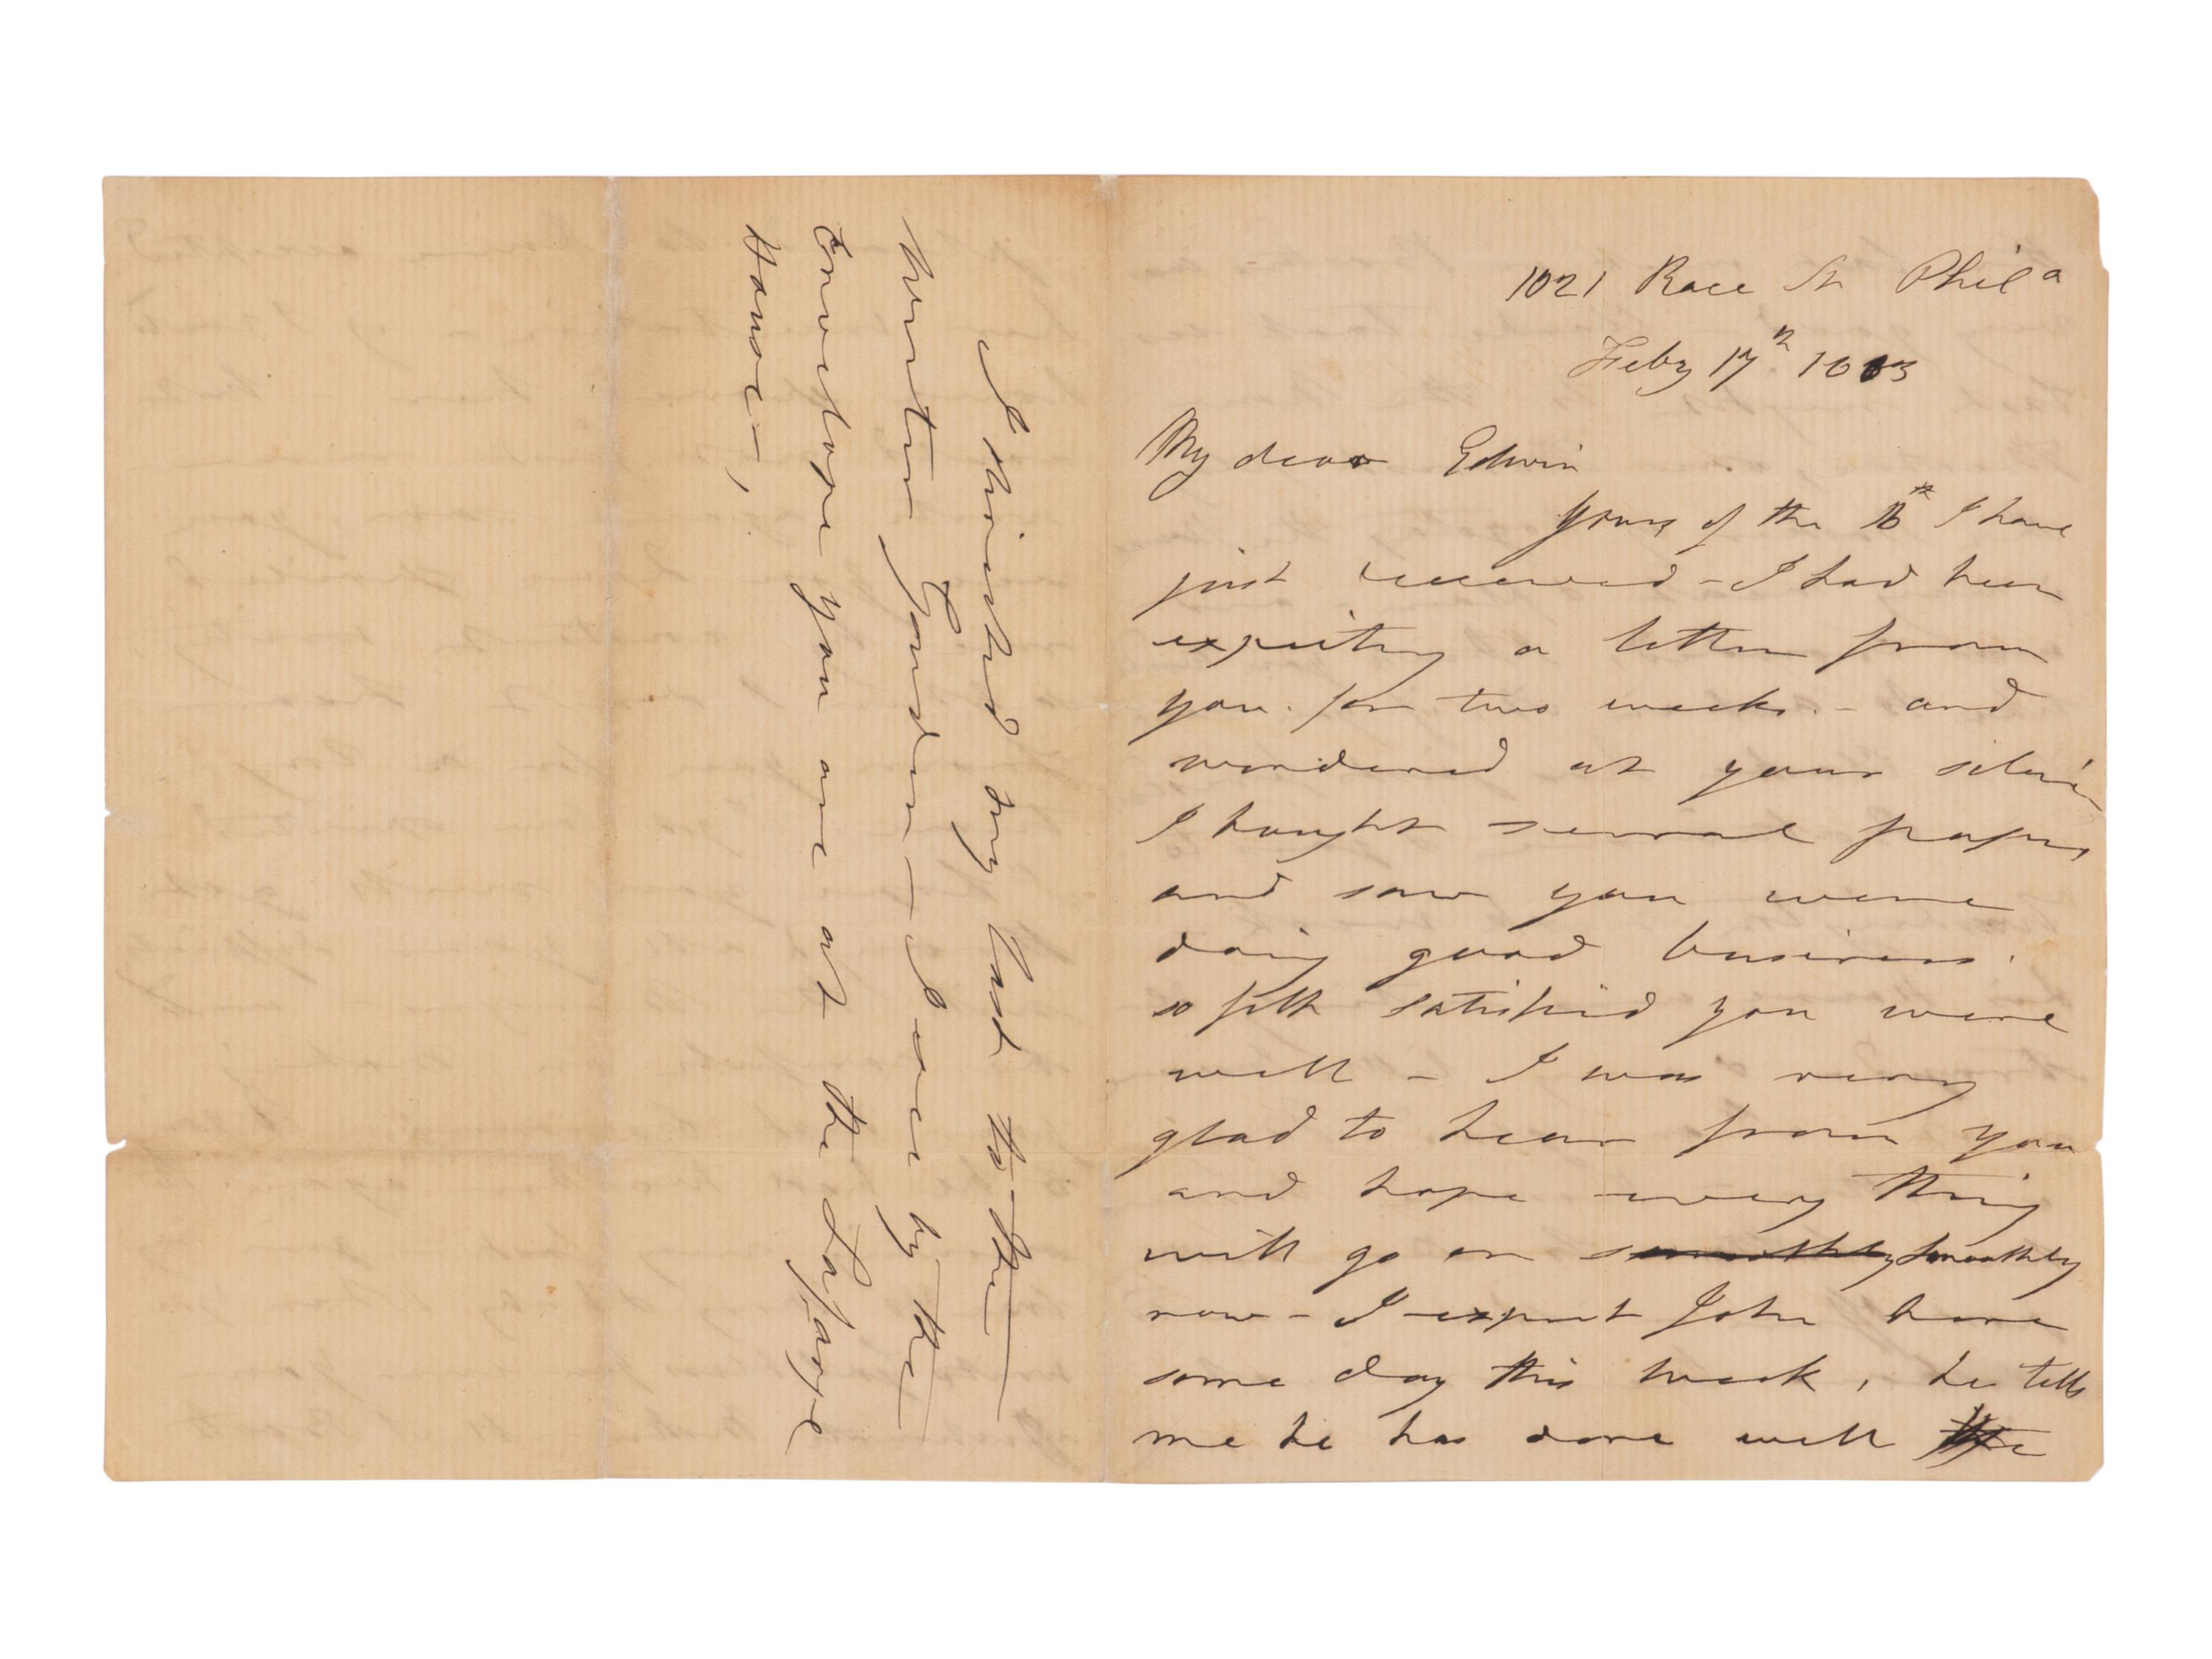 1021 Race St Phila
Feby 17th 1863
My dear Edwin
Yours of the 16th I have
just received - I had been
expecting a letter from
you. for two weeks. - and
wondered at your silence
I bought several papers
and saw you were
doing good business.
so felt satisfied you were
well - I was very
glad to hear from you
and hope every thing
will go on smoothly smoothly
now - I expect John here
some day this week, he tells
me he has done well the
I directed my last to the
Winter Garden - I see by the
Envelope you are at the Lafarge
House -,